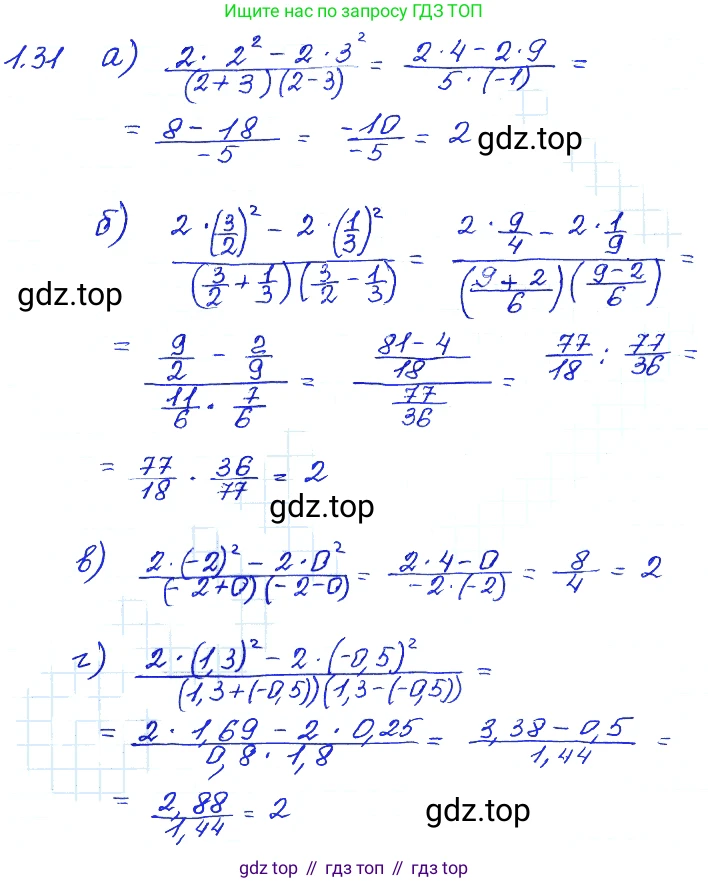 Ищите нас по запросу ГДЗ ТОП
1.31 а) (2 · 2² − 2 · 3²)/((2+3)(2−3)) = (2·4 − 2·9)/(5·(−1)) =
= (8 − 18)/(−5) = (−10)/(−5) = 2 gdz.top
б) (2·(3/2)² − 2·(1/3)²)/((3/2 + 1/3)(3/2 − 1/3)) = (2·9/4 − 2·1/9)/(((9+2)/6)((9−2)/6)) =
gdz.top
= (9/2 − 2/9)/(11/6 · 7/6) = ((81−4)/18)/(77/36) = 77/18 : 77/36 =
= 77/18 · 36/77 = 2
gdz.top
в) (2·(−2)² − 2·0²)/((−2+0)(−2−0)) = (2·4−0)/(−2·(−2)) = 8/4 = 2
г) (2·(1,3)² − 2·(−0,5)²)/((1,3+(−0,5))(1,3−(−0,5))) =
= (2·1,69 − 2·0,25)/(0,8·1,8) = (3,38−0,5)/1,44 =
= 2,88/1,44 = 2 gdz.top
gdz top // гдз топ // гдз top